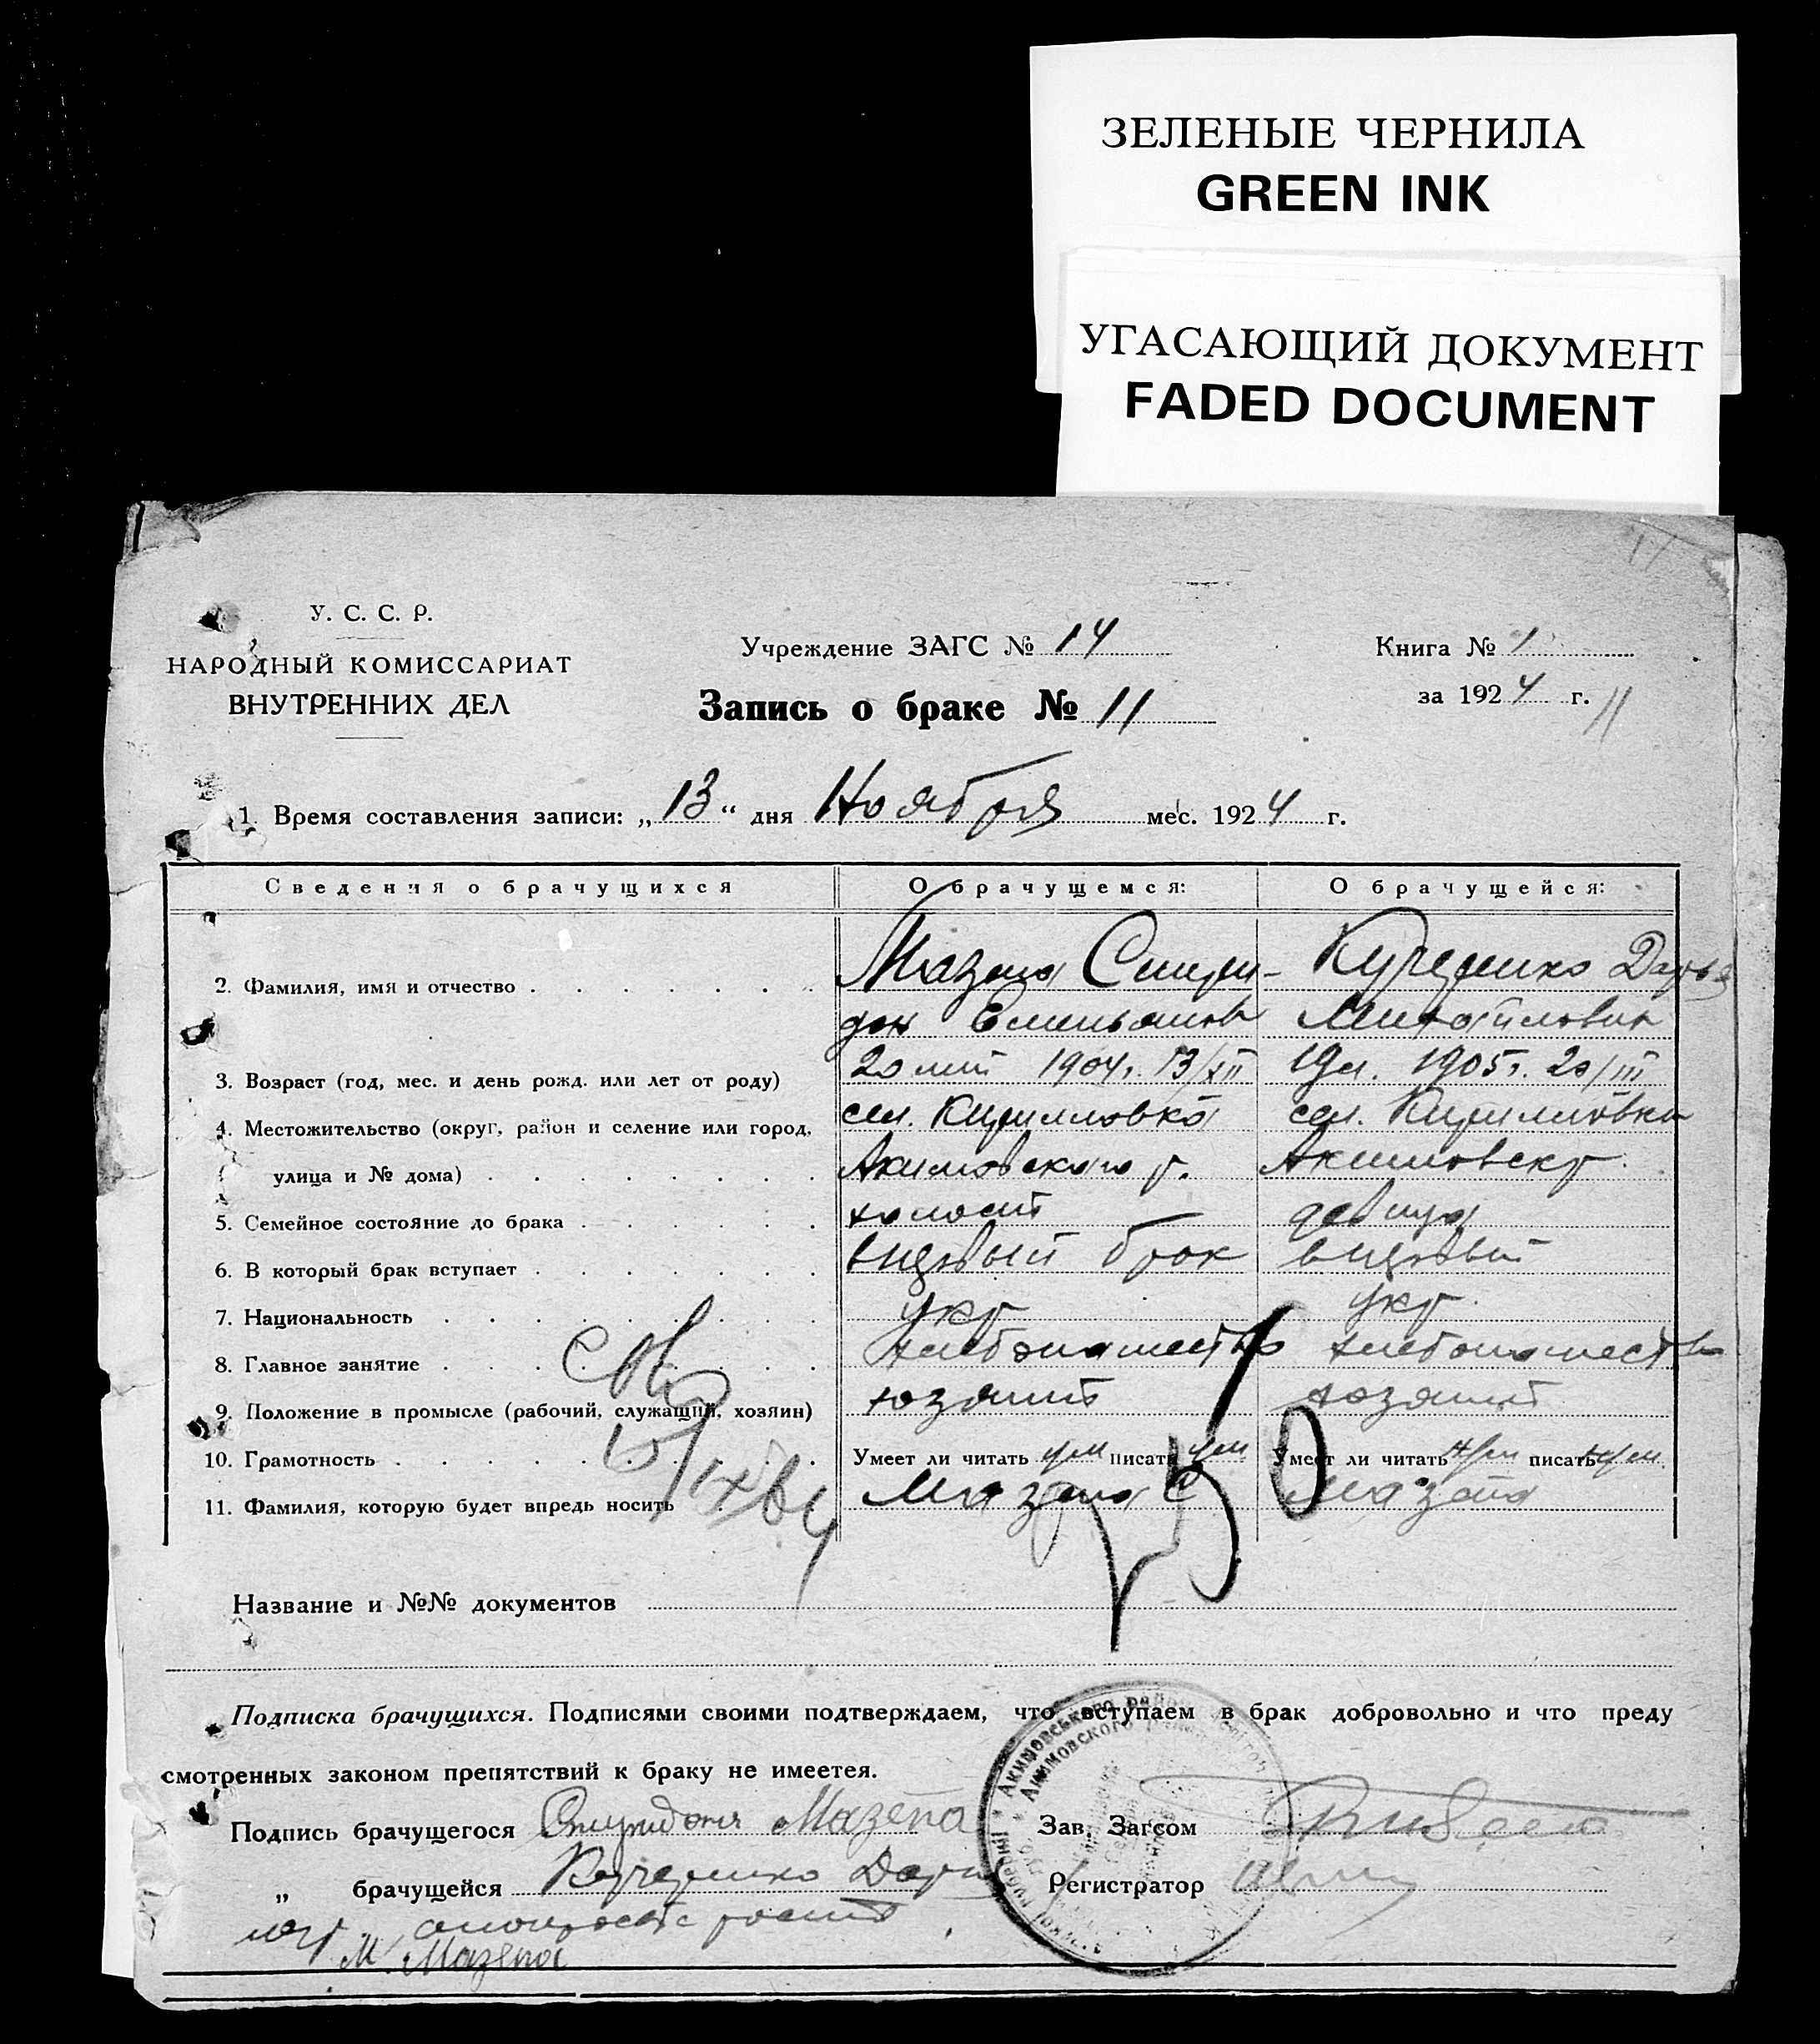 ЗЕЛЕНЫЕ ЧЕРНИЛА
GREEN INK
УГАСАЮЩИЙ ДОКУМЕНТ
FADED DOCUMENT
У. С. С. Р.
НАРОДНЫЙ КОМИССАРИАТ
ВНУТРЕННИХ ДЕЛ
Учреждение ЗАГС № 14
Запись о браке № 11
Книга № 1
за 1924 г. 11
1. Время составления записи: „13“ дня Ноября мес. 1924 г.
Сведения о брачущихся О брачущемся: О брачущейся:
2. Фамилия, имя и отчество Мазепа Спири- Кучеренко Дарья
дон Емельянов Михайловна
3. Возраст (год, мес. и день рожд. или лет от роду) 20 лет 1904г. 13/XII 19л. 1905г. 20/III
4. Местожительство (округ, район и селение или город, сел. Кирилловка сел. Кирилловка
улица и № дома) Акимовского р. Акимовск р.
5. Семейное состояние до брака холост девица
6. В который брак вступает первый брак первый
7. Национальность укр укр.
8. Главное занятие хлебопашество хлебопашество
9. Положение в промысле (рабочий, служащий, хозяин) хозяин
10. Грамотность Умеет ли читать писать Умеет ли читать писать
11. Фамилия, которую будет впредь носить Мазепа Мазепа
Название и №№ документов
Подписка брачущихся. Подписями своими подтверждаем, что вступаем в брак добровольно и что преду
смотренных законом препятствий к браку не имеется.
Подпись брачущегося Спиридон Мазепа Зав. Загсом
„ брачущейся Кучеренко Дария Регистратор
М. Мазепа
Акимовського
Акимовского